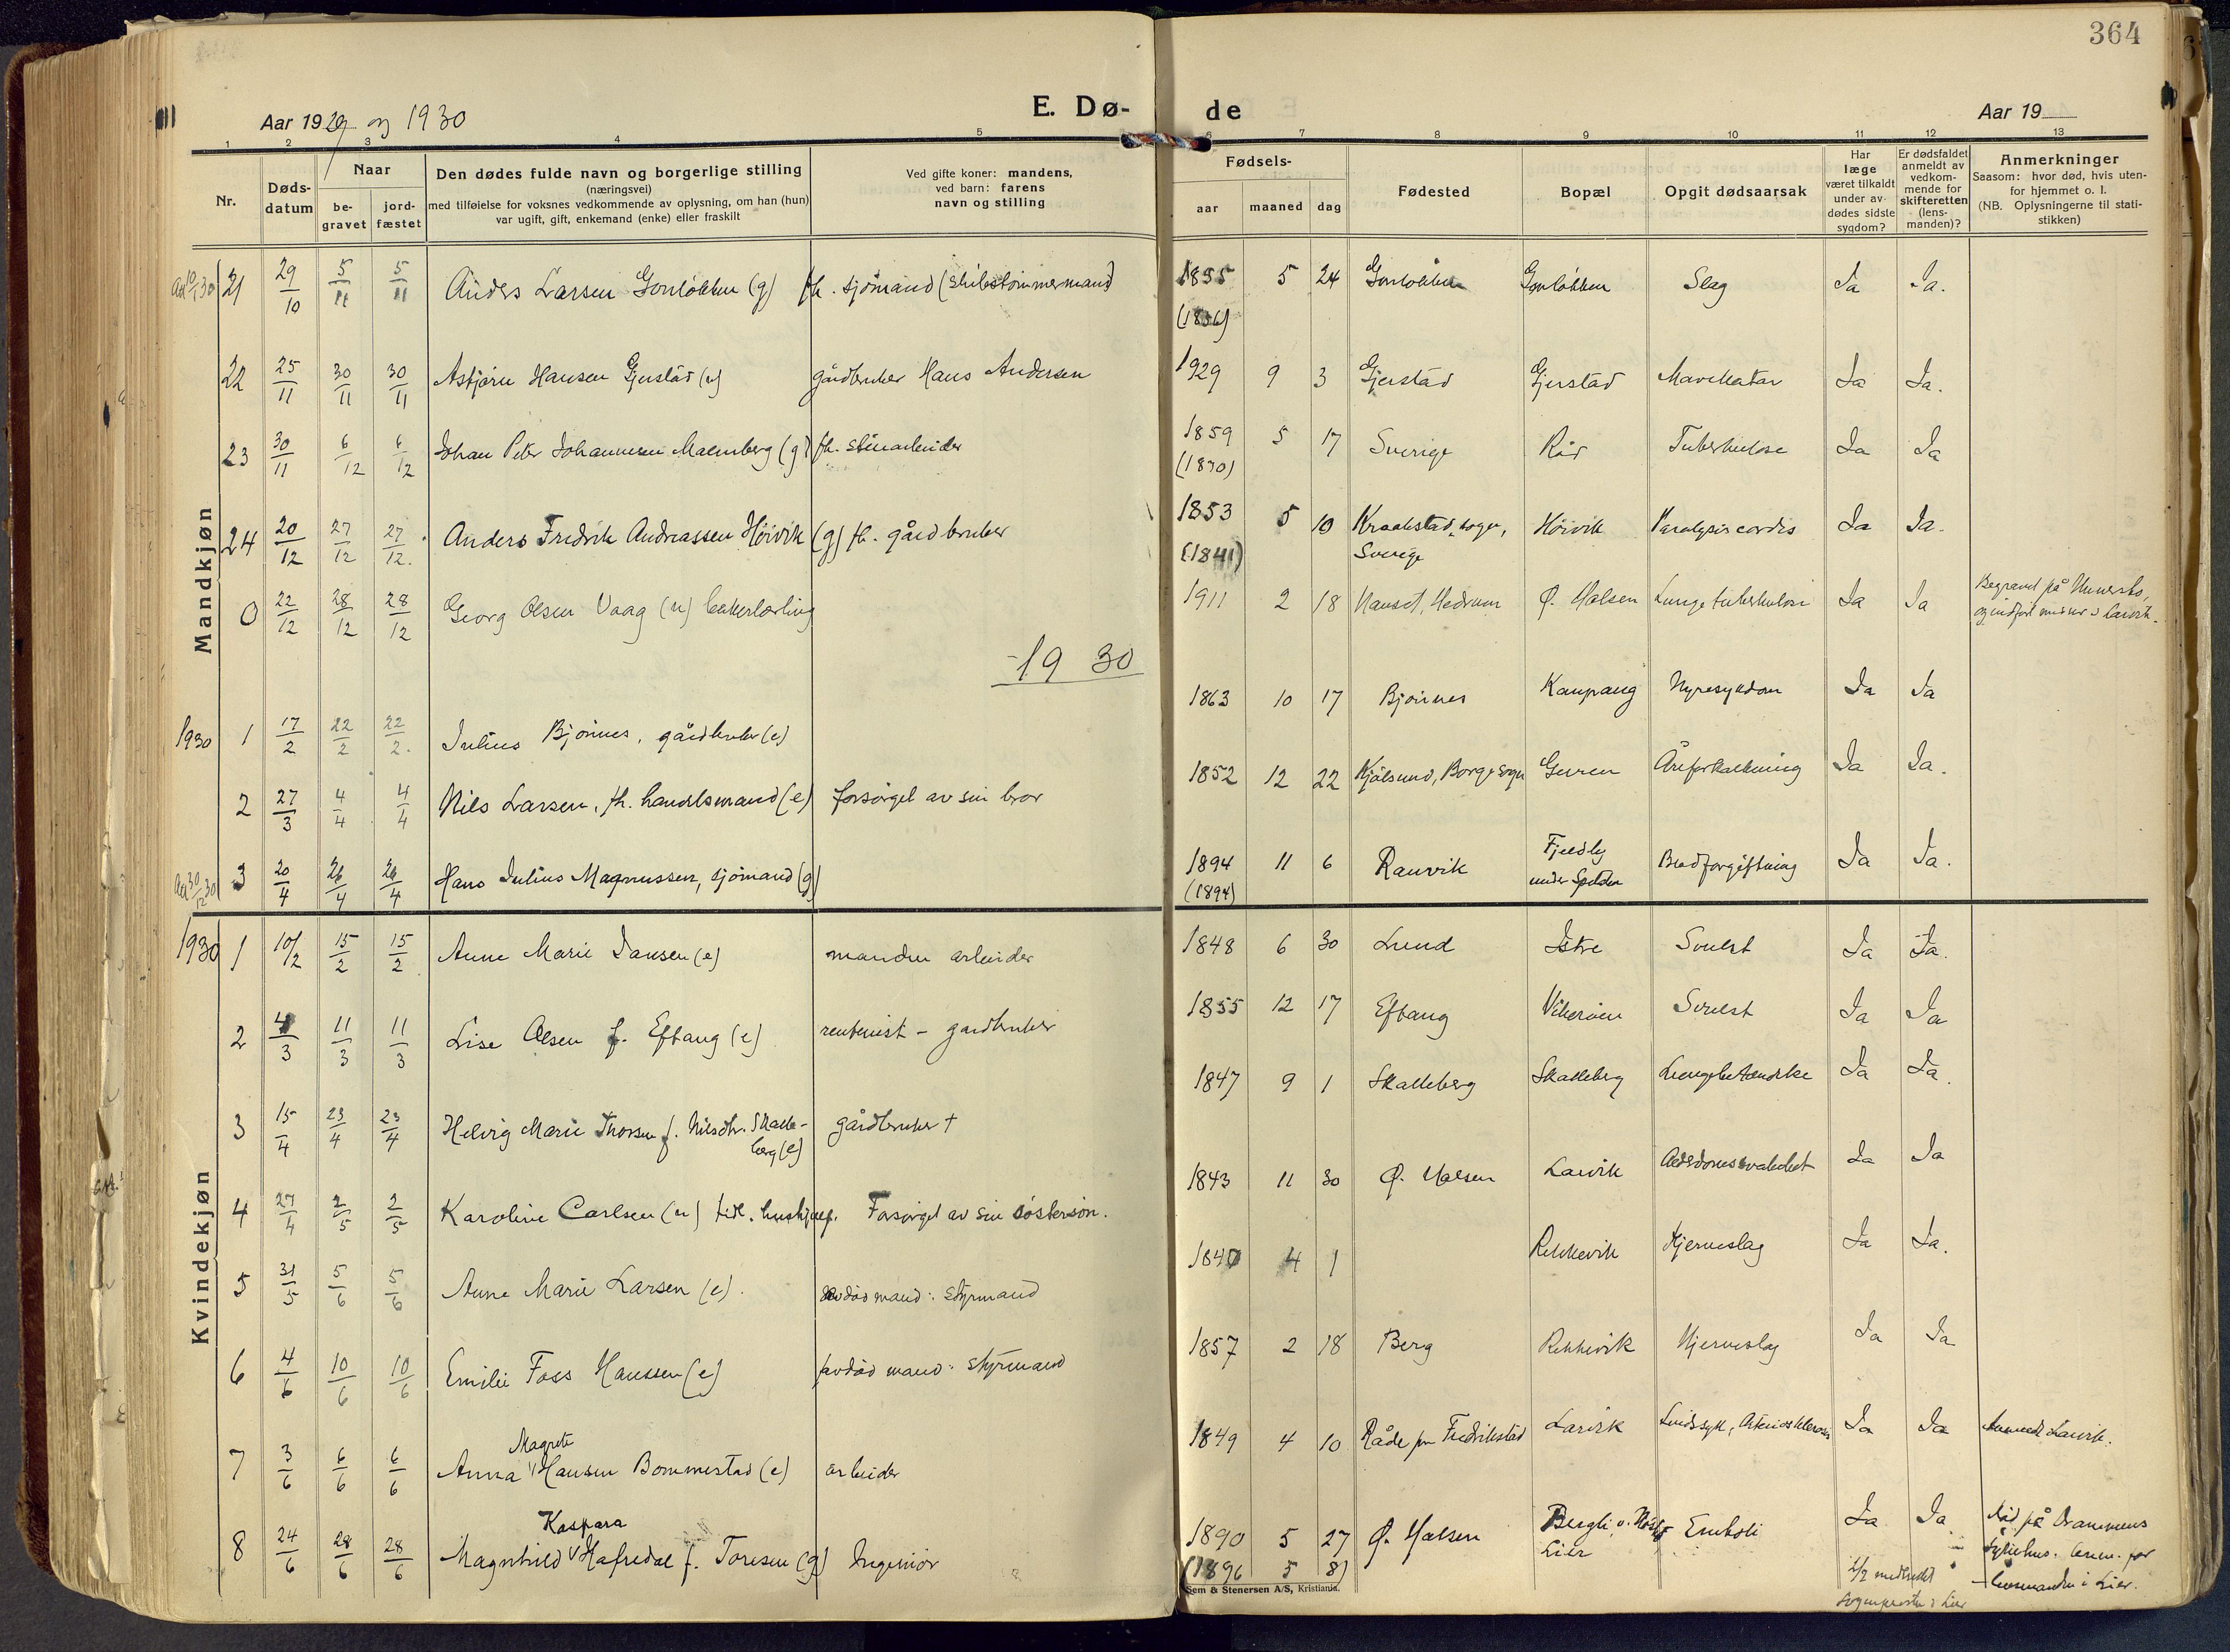 364
Aar 1929 og 1930
E. Dø-
de
Aar 19
1 2 3 4 5 6 7 8 9 10 11 12 13
Nr.
Døds-
datum
Naar
be-
gravet
jord-
fæstet
Den dødes fulde navn og borgerlige stilling
(næringsvei)
med tilføielse for voksnes vedkommende av oplysning, om han (hun)
var ugift, gift, enkemand (enke) eller fraskilt
Ved gifte koner: mandens,
ved barn: farens
navn og stilling
Fødsels-
aar maaned dag
Fødested
Bopæl
Opgit dødsaarsak
Har
læge
været tilkaldt
under av-
dødes sidste
sygdom?
Er dødsfaldet
anmeldt av
vedkom-
mende for
skifteretten
(lens-
manden)?
Anmerkninger
Saasom: hvor død, hvis uten-
for hjemmet o. l.
(NB. Oplysningerne til stati-
stikken)
Mandkjøn
21 29/10 5/11 5/11 Anders Larsen Gonløkken (g) fh. sjømand (skibstømmermand) 1855 5 24 Gonløkken Gonløkken Slag Ja Ja.
22 25/11 30/11 30/11 Asbjørn Hansen Gjerstad (u) gårdbruker Hans Andersen 1929 9 3 Gjerstad Gjerstad Mavekatar Ja Ja.
23 30/11 6/12 6/12 Johan Peter Johannesen Malmberg (g) fh. stenarbeider 1859 5 17 Sverige Rår Tuberkulose Ja Ja
24 20/12 27/12 27/12. Anders Fredrik Andreassen Høivik (g) fh. gårdbruker 1853 5 10 Kraakstad sogn, Høivik Paralysis cordis Ja Ja.
(1841) Sverige
0 22/12 28/12 28/12 Georg Olsen Vaag (u) bakerlærling 1911 2 18 Nanset, Hedrum Ø. Halsen Lungetuberkulose Ja Ja Begravet på
1930
1930 1 17/2 22/2 22/2. Julius Bjønnes, gårdbruker (e) 1863 10 17 Bjønnes Kaupang Nyresykdom Ja Ja
2 27/3 4/4 4/4 Nils Larsen, fh. handelsmand (e) forsørget av sin bror 1852 12 22 Kjølsund, Borge sogn Guren Åreforkalkning Ja Ja.
3 20/4 26/4 26/4 Hans Julius Magnussen, sjømand (g) 1894 11 6 Rauvik Fjeldly Blodforgiftning Ja Ja.
(1894) under
Kvindekjøn
1930 1 10/2 15/2 15/2 Anne Marie Jansen (e) manden arbeider 1848 6 30 Lund Istre Svulst Ja Ja.
2 4/3 11/3 11/3 Lise Olsen f. Eftang (e) rentenist - gardbruker 1855 12 17 Eftang Vikerøien Svulst Ja Ja
3 15/4 23/4 23/4 Helvig Marie Thorsen f. Nilsdtr. Skalle- gårdbruker † 1847 9 1 Skalleberg Skalleberg Lungebetændelse Ja Ja.
berg (e)
4 27/4 2/5 2/5 Karoline Carlsen (u) tidl. hushjelp. Forsørget av sin søstersøn. 1843 11 30 Ø. Halsen Larvik Alderdomssvakhet Ja Ja
5 31/5 5/6 5/6 Anne Marie Larsen (e). avdød mand: styrmand 1840 4 1 Rekkevik Hjerneslag Ja Ja.
6 4/6 10/6 10/6 Emilie Foss Hanssen (e) avdød mand: styrmand 1857 2 18 Berg Rekkevik Hjerneslag Ja Ja
Magrete
7 3/6 6/6 6/6 Anna Hansen Bommestad (e) arbeider 1849 4 10 Råde pr Fredrikstad Larvik Sindssyk, Arteriosklerose Ja Ja Larvik.
Kaspara
8 24/6 28/6 28/6 Magnhild Hafredal f. Toresen (g) Ingeniør 1890 5 27 Ø. Halsen Bergli Emboli Ja Ja Død på Drammens
(1896 5 8) Lier sykehus. Anm. for
lensmanden i Lier.
Sem & Stenersen A/S, Kristiania.
sognepresten i Lier